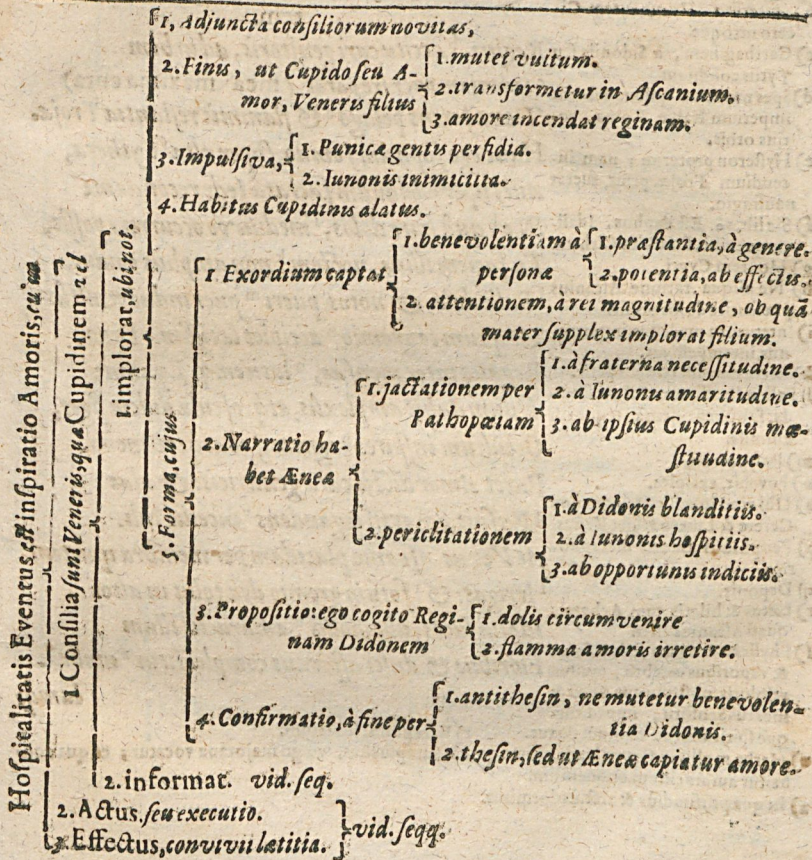 Hospitalitatis Eventus, est inspiratio Amoris, cujus
1 Consilia sunt Veneris, quæ Cupidinem vel
1. implorat, ubi not.
1, Adjuncta consiliorum novitas,
2. Finis, ut Cupido seu A-
mor, Veneris filius
1. mutet vultum.
2. transformetur in Ascanium.
3. amore incendat reginam.
3. Impulsiva,
1. Punicæ gentis perfidia.
2. Iunonis inimicitia.
4. Habitus Cupidinis alatus.
5. Forma, cujus
1 Exordium captat
1. benevolentiam à
personæ
1. præstantia, à genere.
2. potentia, ab effectis.
2. attentionem, à rei magnitudine, ob quã
mater supplex implorat filium.
2. Narratio ha-
bet Æneæ
1. jactationem per
Pathopœiam
1. à fraterna necessitudine.
2. à Iunonis amaritudine.
3. ab ipsius Cupidinis mœ-
stitudine.
2. periclitationem
1. à Didonis blanditiis.
2. à Iunonis hospitiis.
3. ab opportunis indiciis.
3. Propositio: ego cogito Regi-
nam Didonem
1. dolis circumvenire
2. flamma amoris irretire.
4. Confirmatio, à fine per
1. antithesin, ne mutetur benevolen-
tia Didonis.
2. thesin, sed ut Æneæ capiatur amore.
2. informat. vid. seq.
2. Actus, seu executio.
3. Effectus, convivii lætitia.
vid. seqq.